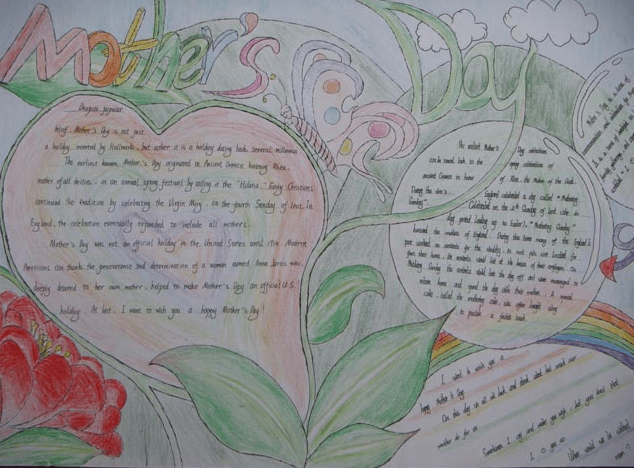 Mother's Day
Despite popular
belief, Mother's Day is not just
a holiday invented by Hallmark, but rather it is a holiday dating back several millennia.
The earliest known Mother's Day originated in Ancient Greece honoring Rhea,
mother of all deities, in an annual spring festival by calling it the "Hilaria." Early Christians
continued the tradition by celebrating the Virgin Mary on the fourth Sunday of Lent. In
England, the celebration eventually expanded to include all mothers.
Mother's Day was not an official holiday in the United States until 1914. Modern
Americans can thank the perseverance and determination of a woman named Anna Jarvis who,
deeply devoted to her own mother, helped to make Mother's Day an official U.S.
holiday. At last, I want to wish you a happy Mother's Day!
The earliest Mother's Day celebrations
can be traced back to the spring celebrations of
ancient Greece in honor of Rhea, the Mother of the Gods.
During the England celebrated a day called "Mothering
Sunday". Celebrated on the 4th Sunday of Lent (the
day period leading up to Easter), "Mothering Sunday"
honored the mothers of England. During this time many of the England's
poor worked as servants for the wealthy. As most jobs were located far
from their homes, the servants would live at the houses of their employers. On
Mothering Sunday the servants would have the day off and were encouraged to
return home and spend the day with their mothers. A special
cake, called the mothering cake, was often brought along
to provide a festive touch.
I want to wish you a
happy Mother's Day.
On this day we all sit back and think about
mother do for us.
Sometimes I cry and make you sigh, but you know that
I you so.